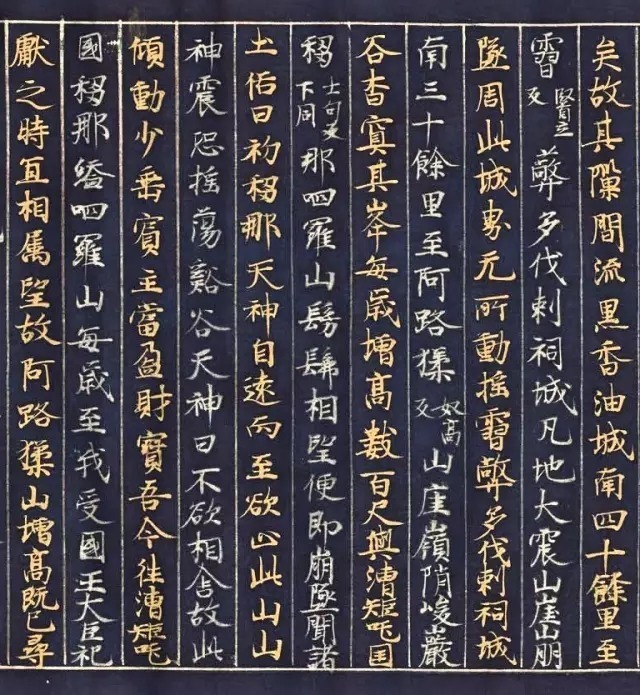 矣故其隟間流黑香油城南四十餘里至
霫立反蔽多伐剌祠城凡地大震山崖崩
墜周此城界无所動摇霫蔽多伐剌祠城
南三十餘里至阿路猱奴高反山崖嶺陗峻巖
谷杳冥其峯每歲增高數百尺與漕矩吒国
䅳士句反下同那呬羅山髣髴相望便即崩墜聞諸
土俗曰初䅳那天神自遠而至欲止此山山
神震恐摇蕩谿谷天神曰不欲相舍故此
傾動少垂賓主當盈財寶吾今往漕矩吒
國䅳那呬羅山每歲至我受國王大臣祀
獻之時宜相属望故阿路猱山增高既已尋